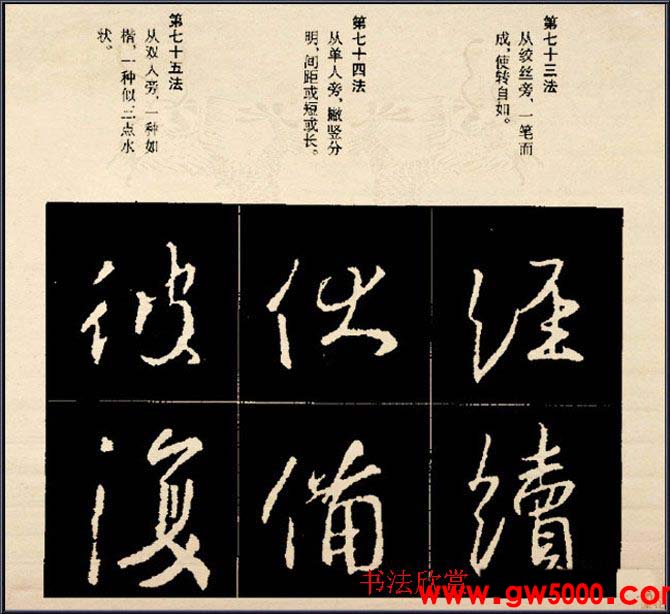 第七十三法
从绞丝旁，一笔而
成，使转自如。
第七十四法
从单人旁，撇竖分
明，间距或短或长。
第七十五法
从双人旁，一种如
楷，一种似三点水
状。
经
續
伏
備
彼
復
书法欣赏
www.gw5000.com